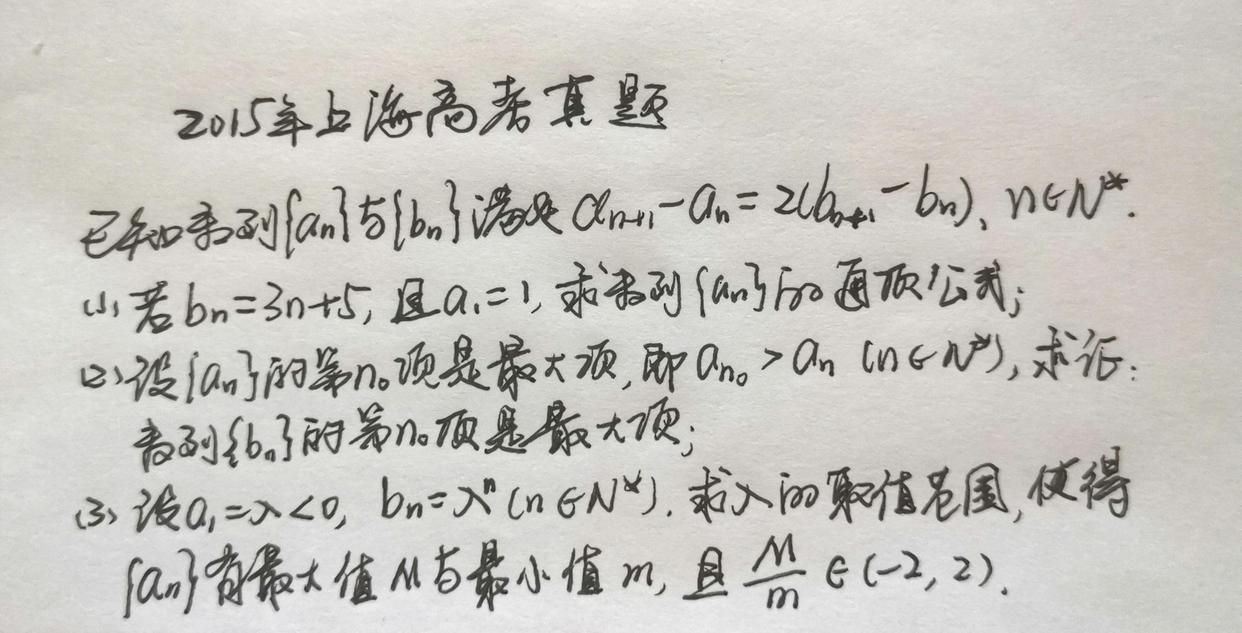 2015年上海高考真题
已知数列{aₙ}与{bₙ}满足 aₙ₊₁-aₙ=2(bₙ₊₁-bₙ), n∈N*.
(1) 若bₙ=3n+5, 且a₁=1, 求数列{aₙ}的通项公式;
(2) 设{aₙ}的第n₀项是最大项, 即aₙ₀>aₙ (n∈N*), 求证:
数列{bₙ}的第n₀项是最大项;
(3) 设a₁=λ<0, bₙ=λⁿ (n∈N*). 求λ的取值范围, 使得
{aₙ}有最大值M与最小值m, 且 M/m ∈(-2,2).